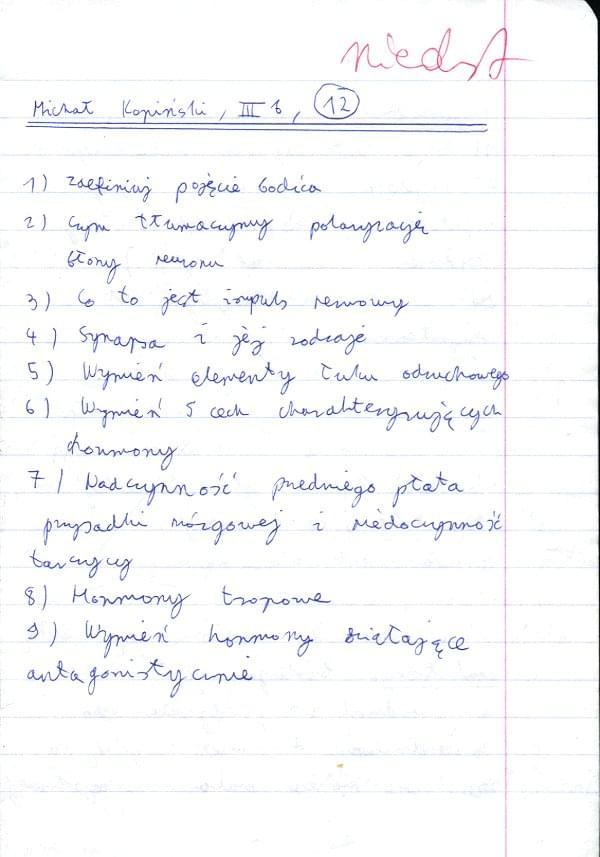 niedst
Michał Kopiński, III b, 12
1) zdefiniuj pojęcie bodźca
2) czym tłumaczymy polaryzację
błony neuronu
3) Co to jest impuls nerwowy
4) Synapsa i jej rodzaje
5) Wymień elementy łuku odruchowego
6) Wymień 5 cech charakteryzujących
hormony
7) Nadczynność przedniego płata
przysadki mózgowej i niedoczynność
tarczycy
8) Hormony tropowe
9) Wymień hormony działające
antagonistycznie